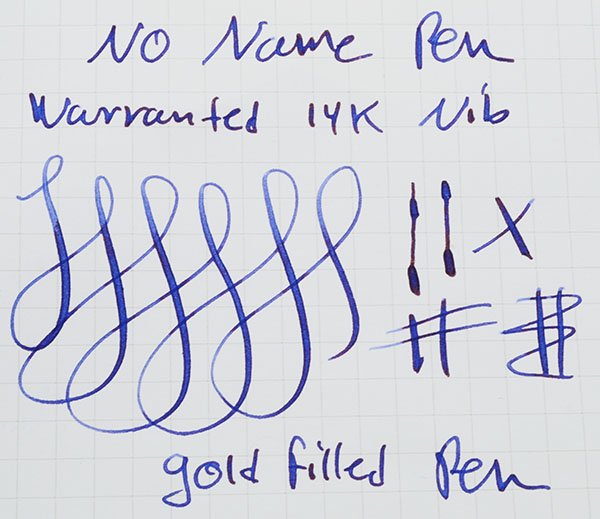 No Name Pen
Warranted 14K Nib
gold filled Pen